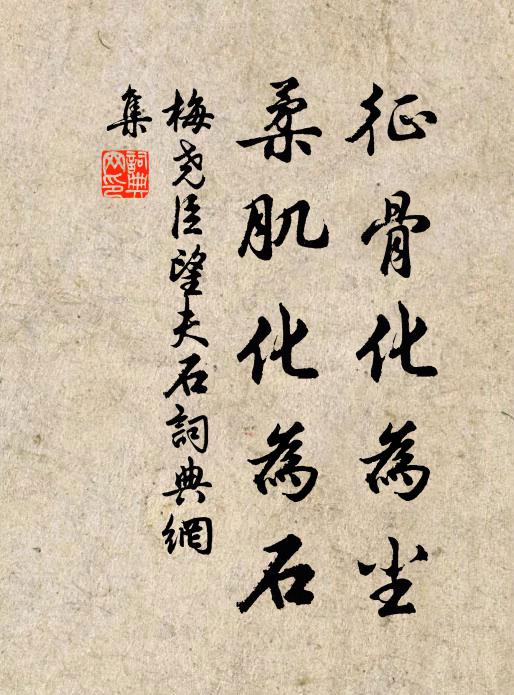 征骨化為尘
柔肌化為石
梅尧臣望夫石詞典網
集
詞典
网印